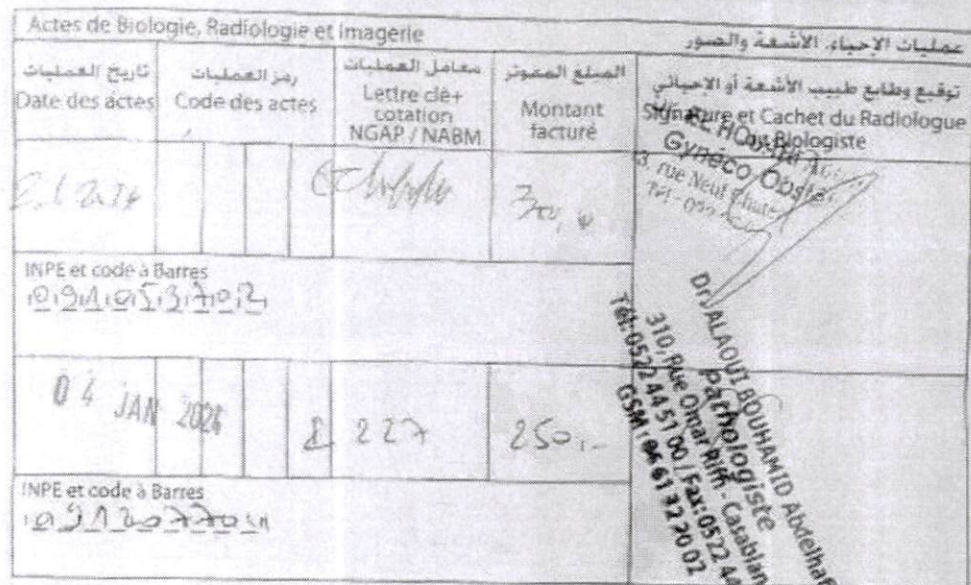 Actes de Biologie, Radiologie et Imagerie
عمليات الإحياء، الأشعة والصور
تاريخ العمليات
Date des actes
رمز العمليات
Code des actes
معامل العمليات
Lettre clé+
cotation
NGAP / NABM
المبلغ المفوتر
Montant
facturé
توقيع وطابع طبيب الأشعة أو الاحيائي
Signature et Cachet du Radiologue
ou Biologiste
Gynéco Obsté
3, rue Neuf
INPE et code à Barres
091053702
Dr. JALAOUI BOUHAMID Abdelhaf
Pathologiste
310, Rue Omar Riffi - Casablan
Tél: 0522 44 51 00 / Fax: 0522 44
GSM: 06 61 32 20 02
04 JAN 2024
227
250,-
INPE et code à Barres